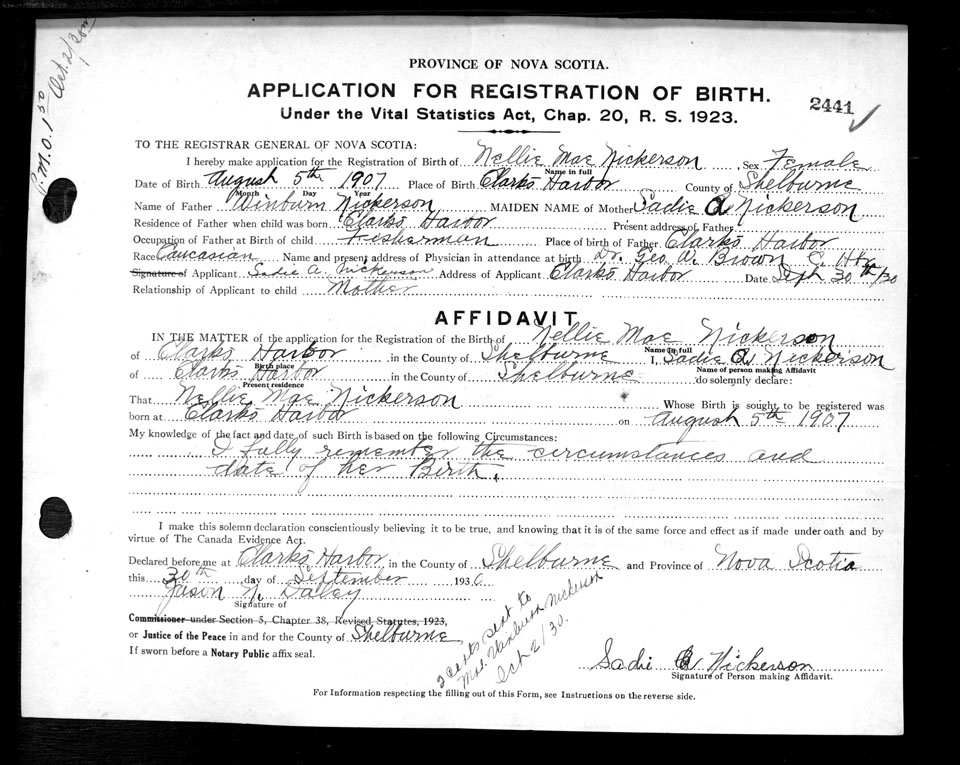 M.O. 1 50 Oct. 2/30
PROVINCE OF NOVA SCOTIA.
APPLICATION FOR REGISTRATION OF BIRTH.
2441
Under the Vital Statistics Act, Chap. 20, R. S. 1923.
TO THE REGISTRAR GENERAL OF NOVA SCOTIA:
I hereby make application for the Registration of Birth of Nellie Mae Nickerson Sex Female
Name in full
Date of Birth August 5th 1907 Place of Birth Clarks Harbor County of Shelburne
Month Day Year
Name of Father Winburn Nickerson MAIDEN NAME of Mother Sadie A Nickerson
Residence of Father when child was born Clarks Harbor Present address of Father
Occupation of Father at Birth of child Fisherman Place of birth of Father Clarks Harbor
Race Caucasian Name and present address of Physician in attendance at birth Dr. Geo W. Brown C. Hbr
Signature of Applicant Sadie A. Nickerson Address of Applicant Clarks Harbor Date Sept 30th/30
Relationship of Applicant to child Mother
AFFIDAVIT
IN THE MATTER of the application for the Registration of the Birth of Nellie Mae Nickerson
Name in full
of Clarks Harbor in the County of Shelburne I, Sadie A Nickerson
Birth place Name of person making Affidavit
of Clarks Harbor in the County of Shelburne do solemnly declare:
Present residence
That Nellie Mae Nickerson Whose Birth is sought to be registered was
born at Clarks Harbor on August 5th 1907
My knowledge of the fact and date of such Birth is based on the following Circumstances:
I fully remember the circumstances and
date of her Birth.
I make this solemn declaration conscientiously believing it to be true, and knowing that it is of the same force and effect as if made under oath and by
virtue of The Canada Evidence Act.
Declared before me at Clarks Harbor in the County of Shelburne and Province of Nova Scotia
this 30th day of September 1930
Jason N. Daley
Signature of
Commissioner under Section 5, Chapter 38, Revised Statutes, 1923,
or Justice of the Peace in and for the County of Shelburne
If sworn before a Notary Public affix seal.
2 certs sent to
Mrs. Winburn Nickerson
Oct 2/30.
Sadie A Nickerson
Signature of Person making Affidavit.
For Information respecting the filling out of this Form, see Instructions on the reverse side.